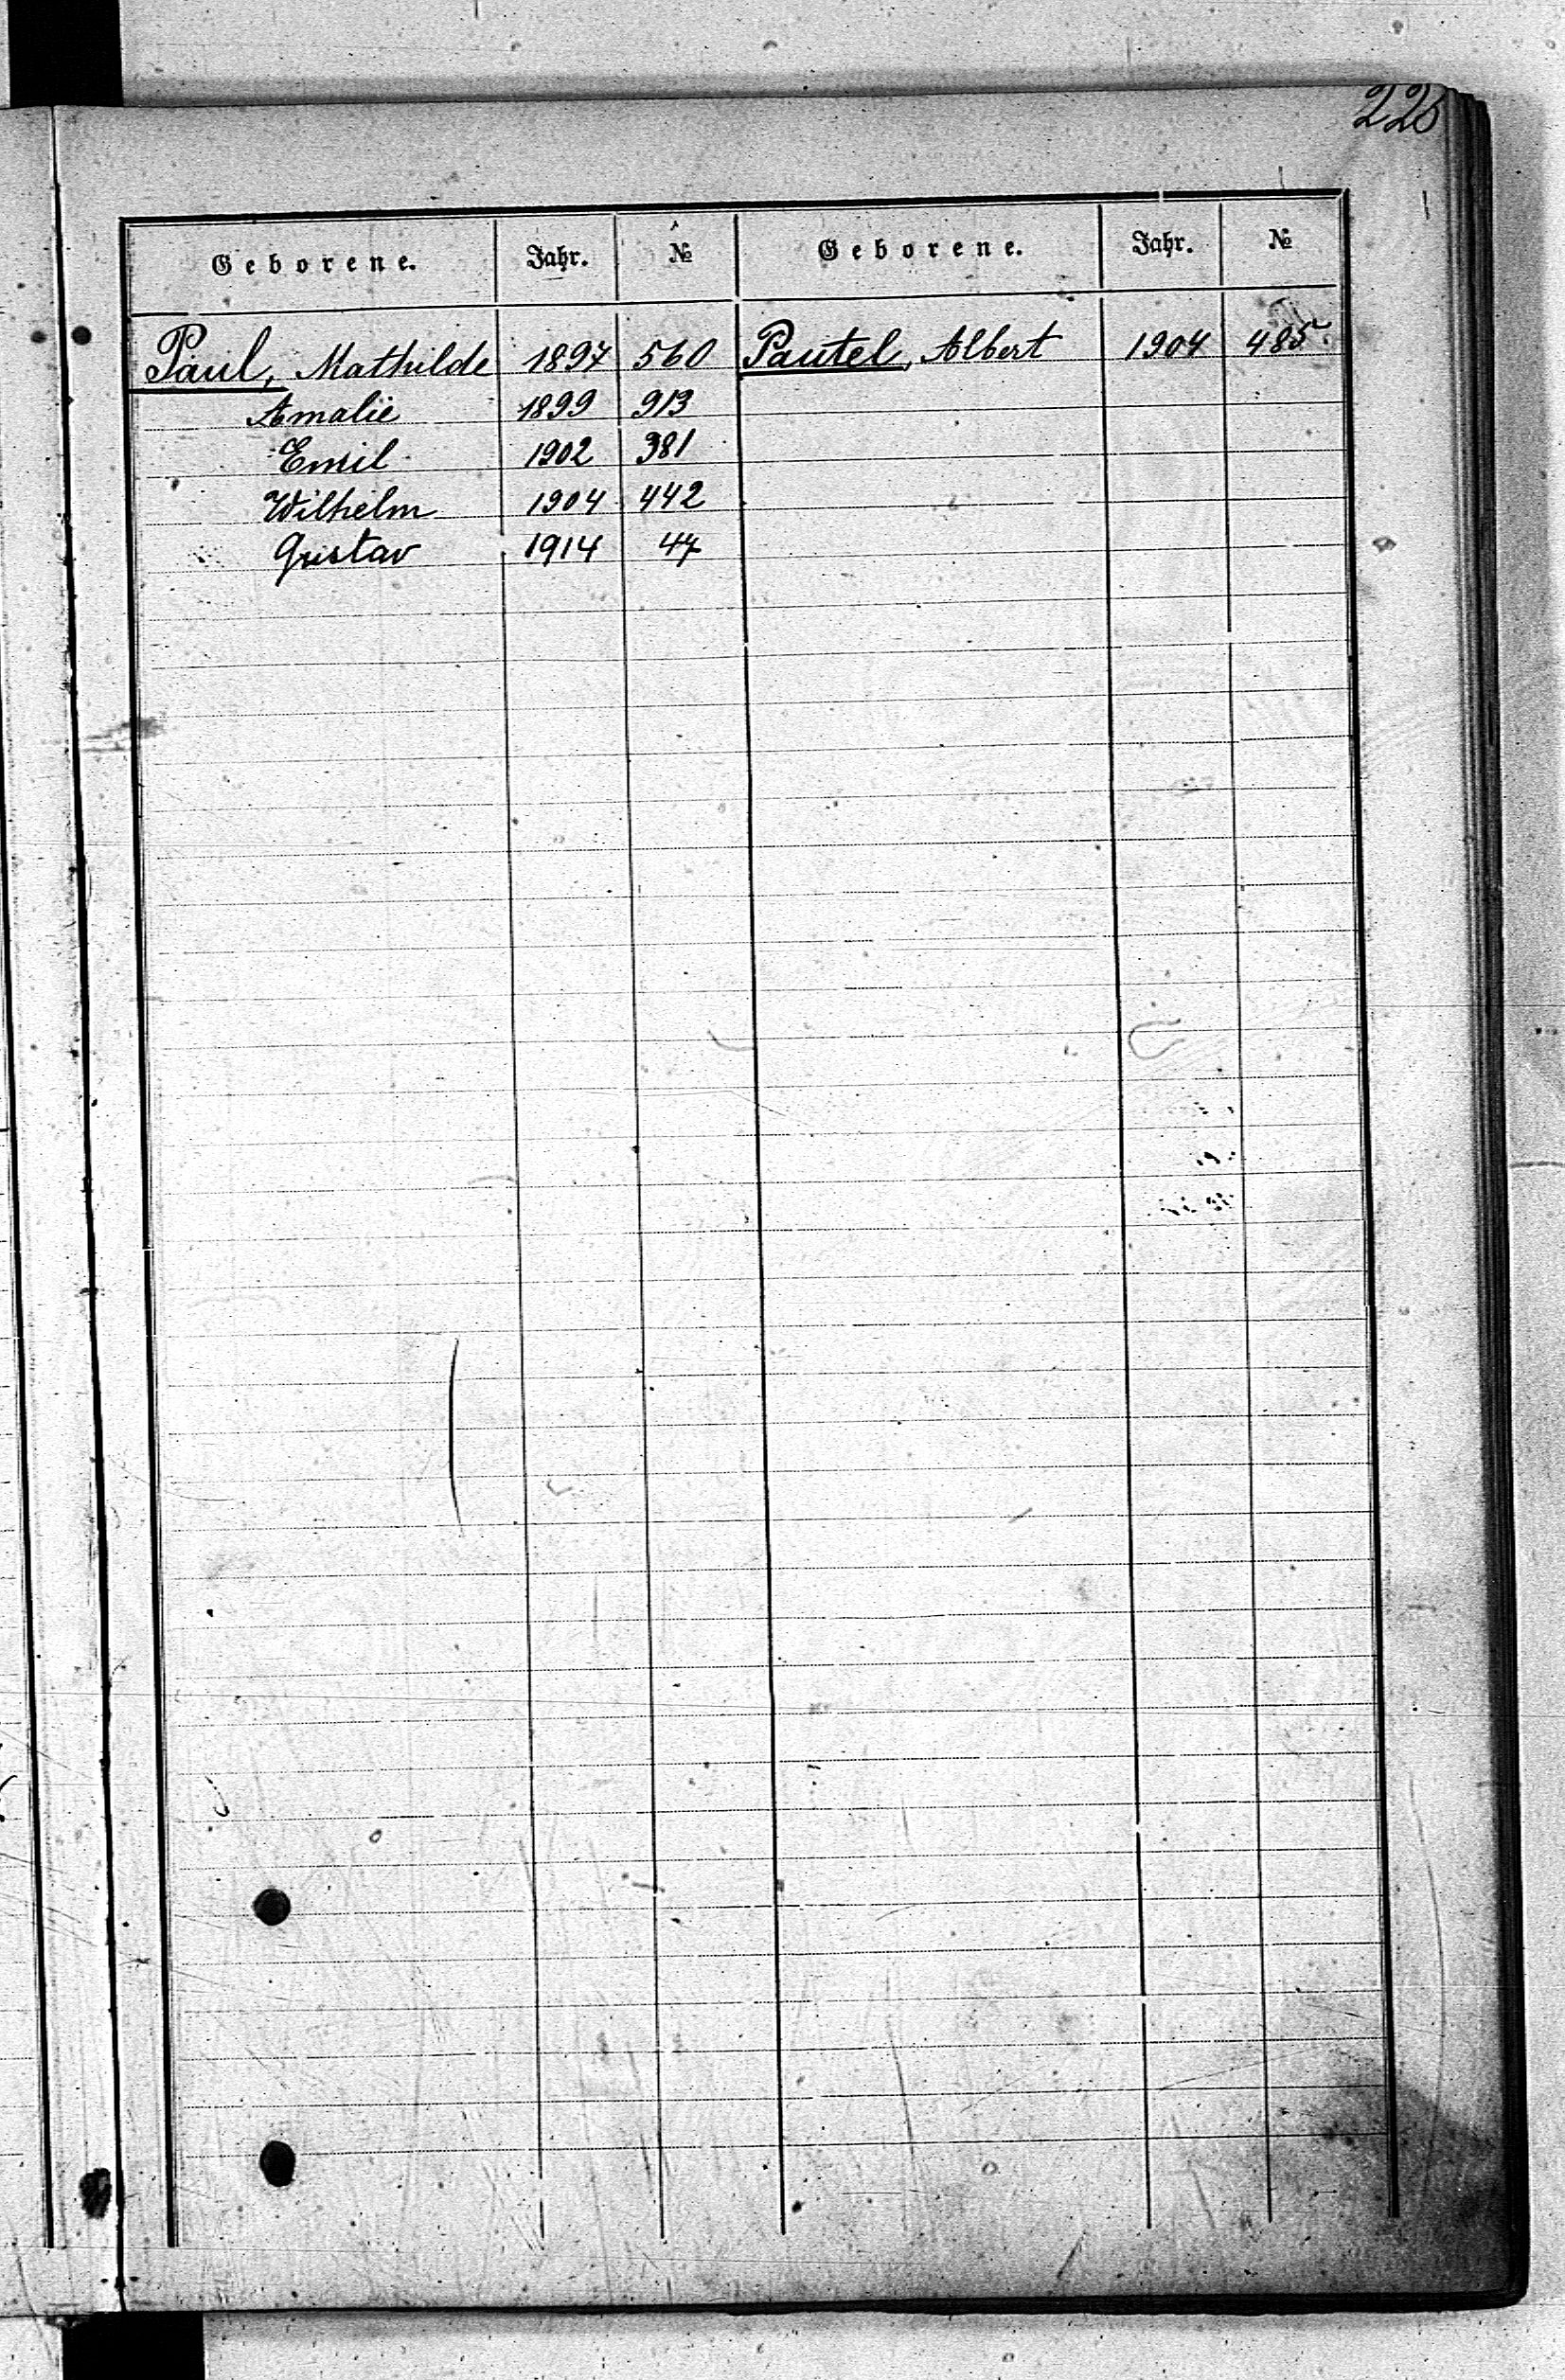 Geborene. Jahr. № Geborene. Jahr. №
Paul, Mathilde 1897 560 Pautel, Albert 1904 485.
Amalie 1899 913
Emil 1902 381
Wilhelm 1904 442
Gustav 1914 47